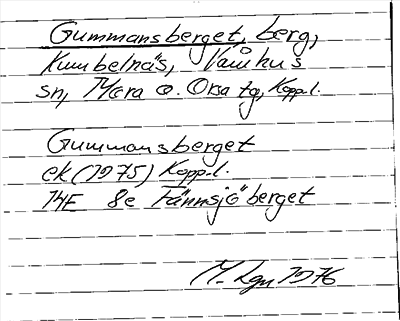 Gummansberget, berg,
Kumbelnäs, Våmhus
sn, Mora o. Orsa tg, Kopp.l.
Gummansberget
ek (1975) Kopp.l.
14E 8e Fännsjöberget
M. Lgn 1976